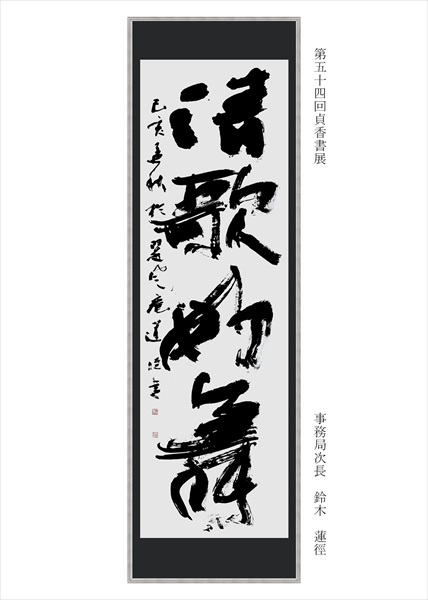 第五十四回貞香書展
事務局次長 鈴木 蓮徑
清歌妙舞
己亥 於 庵蓮徑